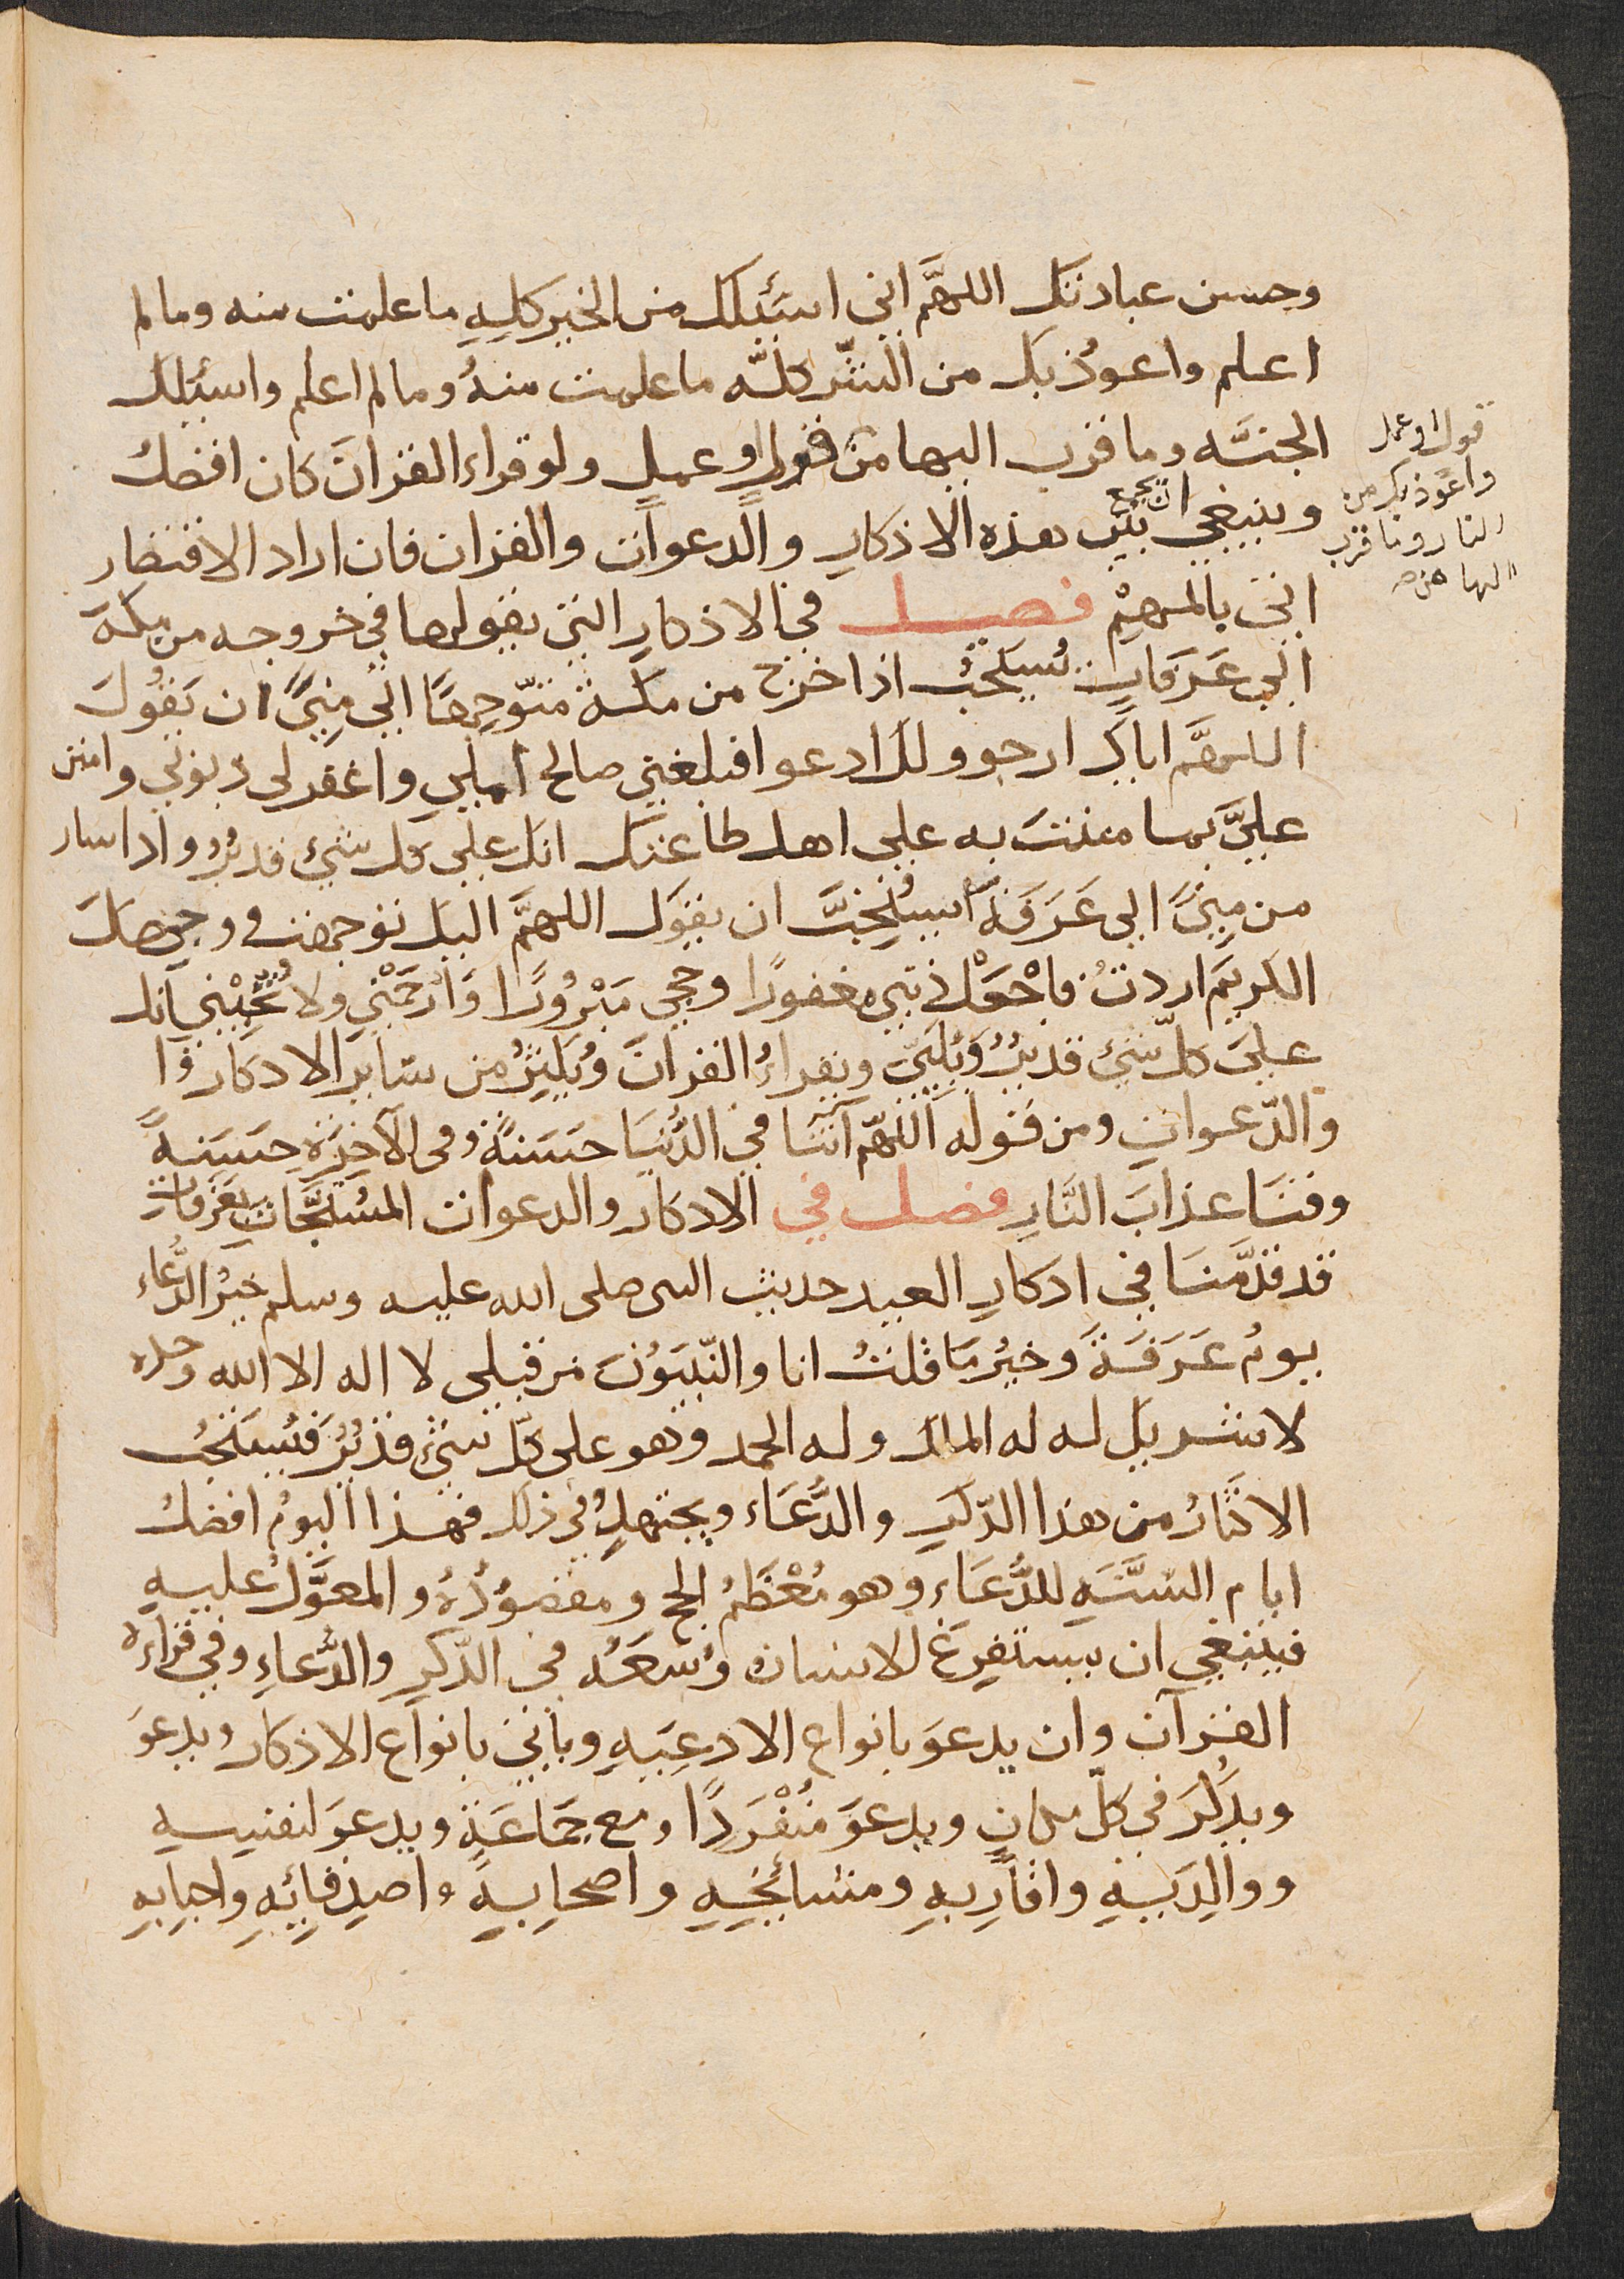 وحسن عبادتك اللهمَّ اني اسئلك من الخير كلِهِ ما علمت منه ومالم
اعلم واعوُذ بك من الشّر كلّه ما علمت منهُ ومالم اعلم واسئلك
الجنَّه وما قرب اليها من قولٍ او عملٍ ولو قراء القرانَ كان افضلُ
قول او عمل
واعوذ بك من
النار وما قرب
اليها من
وينبغي ان يجمع بين هذه الاذكارِ والدعوات والقران فان اراد الاقتصار
اتى بالمهمْ فصل في الاذكارِ التي يقولها في خروجه من مكة
الي عَرَفاتٍ يُستحبُ اذا خرج من مكة متوّجِهًا الي مِنيً ان يَقُولَ
اللهمَّ اياك ارجو ولك ادعوا فبلغني صالح املي واغفر لي ذنوبي وامنن
عليَّ بما مننتَ به علي اهل طاعتك انك علي كل شيئ قديرُ واذا سار
من مِنيً الي عَرَفَةَ اُستُحِبَّ ان يقوَل اللهمَّ اليك توجهت ووجهك
الكريمَ اردتُ فاجْعَلْ ذنبي مغفورًا وحجي مَبْرُورًا وَارْحَمْني ولا تُخَيّبْني انك
علىَ كلّ شيئ قديرُ وَيُلَبّي ويقراءُ القرانَ ويُكثِرُ من سَاير الاذكار وا
والدّعوات ومن قوله اللهّم آتنَا في الدُّنيَا حسَنةً وفى الآخِرَةِ حسَنةً
وقنَا عذابَ النَّارِ فصل في الاذكار والدعوات المُستَحبَّاتِ بعَرَفاتٍ
قد قدَّمنَا في اذكارِ العيد حديث النبى صلى الله عليه وسلم خيرُ الدُّعاء
يومُ عَرَفَةَ وخيرُ مَا قلتُ انا والنّبيّوُنَ من قبلي لا اله الا الله وحده
لا شريك له له الملك وله الحمد وهو على كلّ شيئ قديرُ فيُستحبُ
الاكثارُ من هذا الذّكرِ والدُّعَاء ويجتهدُ في ذلك فهذا اليومُ افضلُ
ايام السَّنَهِ للدُّعَاءِ وهو مُعْظَمُ الحج ومقصوُدُهُ والمعوَّلُ عليهِ
فينبغي ان يستفرِغَ الانسانُ وُسعَهُ في الذّكرِ والدُّعاءِ وفي قراءة
القرآن وان يدعوَ بانواعِ الادعِيَهِ وياتي بانواع الاذكار ويدعوَ
ويذكُرَ في كلّ مكانٍ ويدعوَ مُنْفَرِدًا ومع جَمَاعَةٍ ويدعوَ لنفسِهِ
ووالِدَيْهِ واقارِبهِ ومشائِخِهِ واصحابِهِ واصدِقائِهِ واحبابهِ